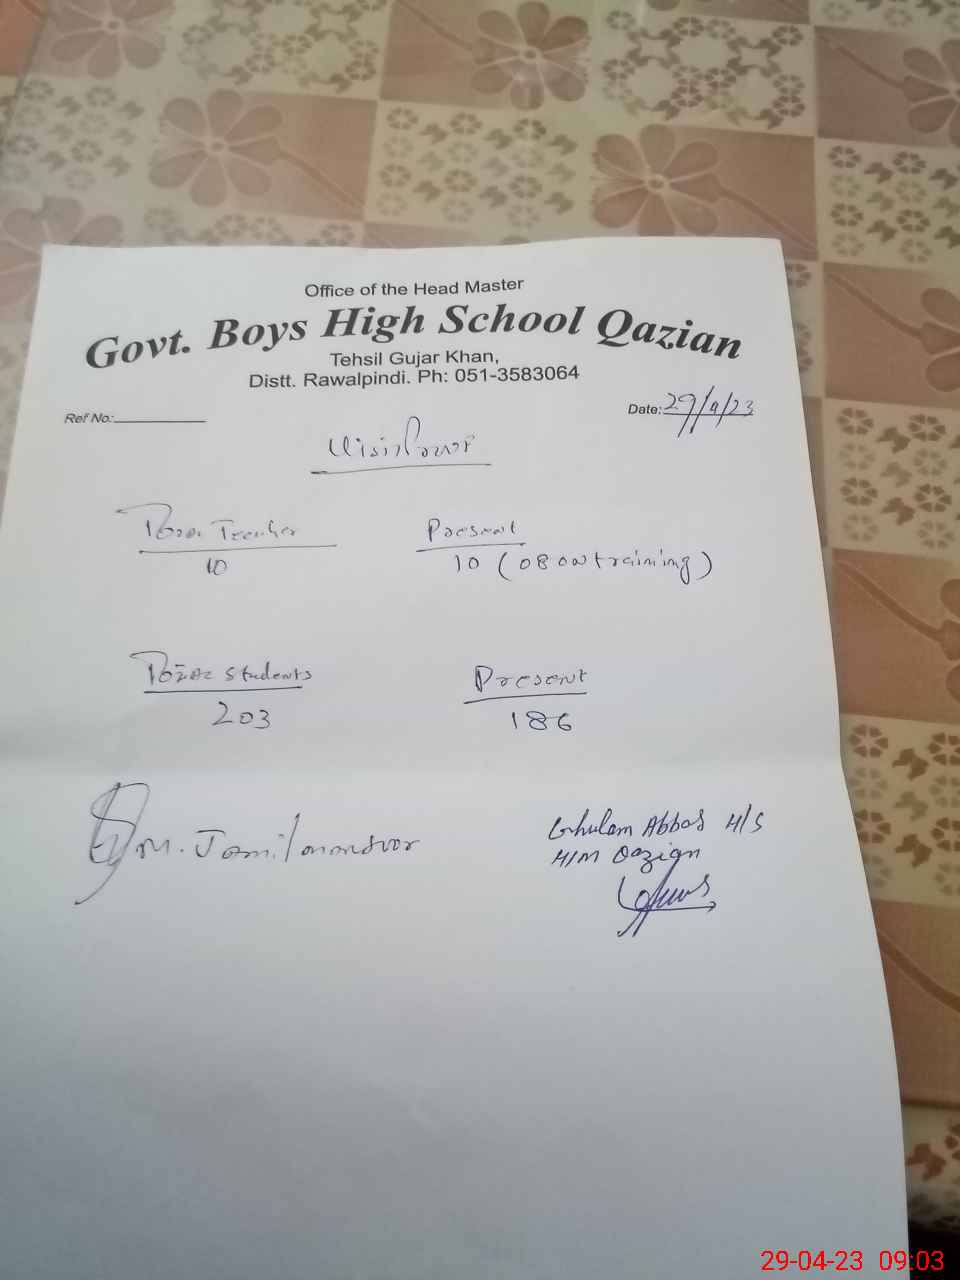 Office of the Head Master
Govt. Boys High School Qazian
Tehsil Gujar Khan,
Distt. Rawalpindi. Ph: 051-3583064
Ref No:
Date: 29/4/23
Teacher Present
10 10 (08 on training)
Students Present
203 186
M. Jamil Ghulam Abbas H/S
H/M Qazian
29-04-23 09:03